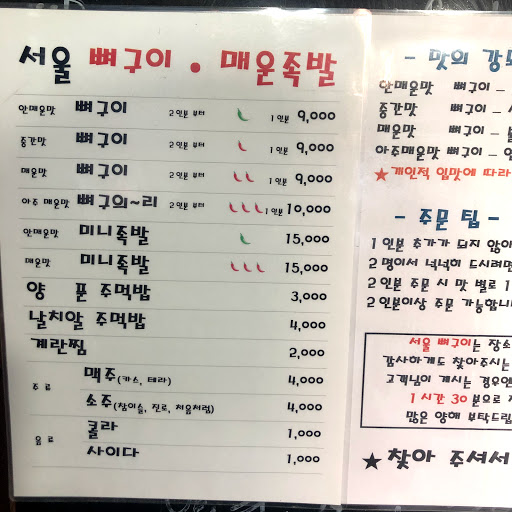 서울 뼈구이 • 매운족발
안매운맛 뼈구이 2인분 부터 1인분 9,000
중간맛 뼈구이 2인분 부터 1인분 9,000
매운맛 뼈구이 2인분 부터 1인분 9,000
아주 매운맛 뼈구의~리 2인분 부터 1인분 10,000
안매운맛 미니족발 15,000
매운맛 미니족발 15,000
양푼 주먹밥 3,000
날치알 주먹밥 4,000
계란찜 2,000
주류
맥주(카스, 테라) 4,000
소주(참이슬, 진로, 처음처럼) 4,000
음료
콜라 1,000
사이다 1,000
- 맛의 강도
안매운맛 뼈구이 -
중간맛 뼈구이 -
매운맛 뼈구이 -
아주매운맛 뼈구이 -
★개인적 입맛에 따라
- 주문 팁 -
1인분 추가가 되지 않
2명이서 넉넉히 드시려면
2인분 주문 시 맛 별로 1
2인분이상 주문 가능합니
서울 뼈구이는 장소
감사하게도 찾아주시는
고객님이 계시는 경우엔
1시간 30분으로
많은 양해 부탁드립
★ 찾아 주셔서